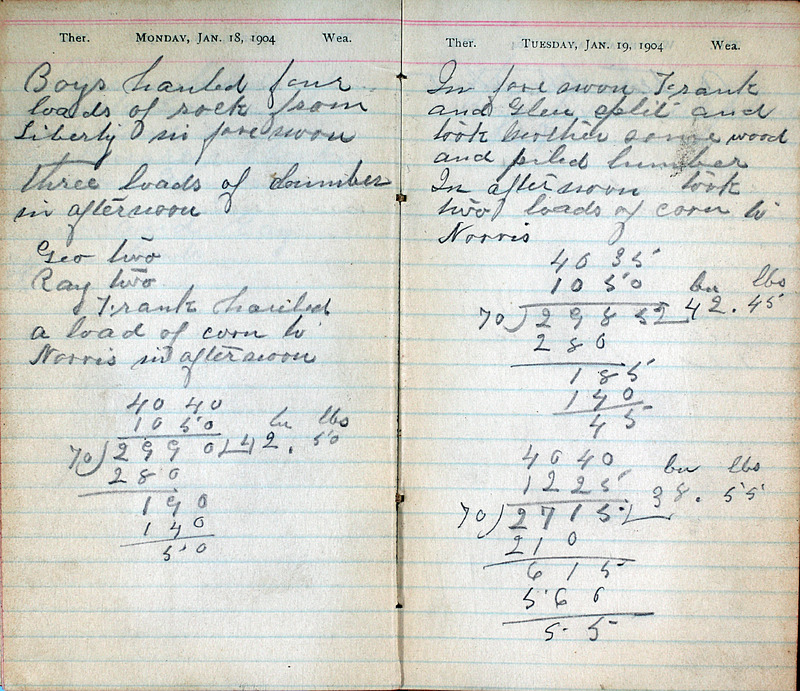 Ther. MONDAY, JAN. 18, 1904 Wea.
Boys hauled four
loads of rock from
Liberty in fore noon
three loads of lumber
in afternoon
Geo two
Ray two
Frank hauled
a load of corn to
Norris in afternoon
40 40
10 50 bu lbs
70)2990 42. 50
280
190
140
50
Ther. TUESDAY, JAN. 19, 1904 Wea.
In fore noon Frank
and Glen split and
took Mother some wood
and piled lumber
In afternoon took
two loads of corn to
Norris
40 35
10 50 bu lbs
70)2985 42. 45
280
185
140
45
4040
1225 bu lbs
70)2715 38. 55
210
615
560
55